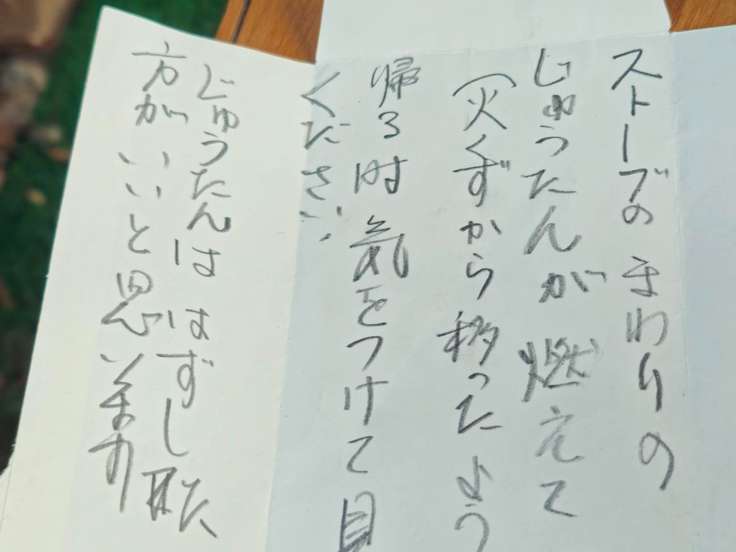 ストーブの まわりの
じゅうたんが 燃えて
(火くずから移ったよう
帰る時 気をつけて 見
ください
じゅうたんは はずした
方がいいと思います